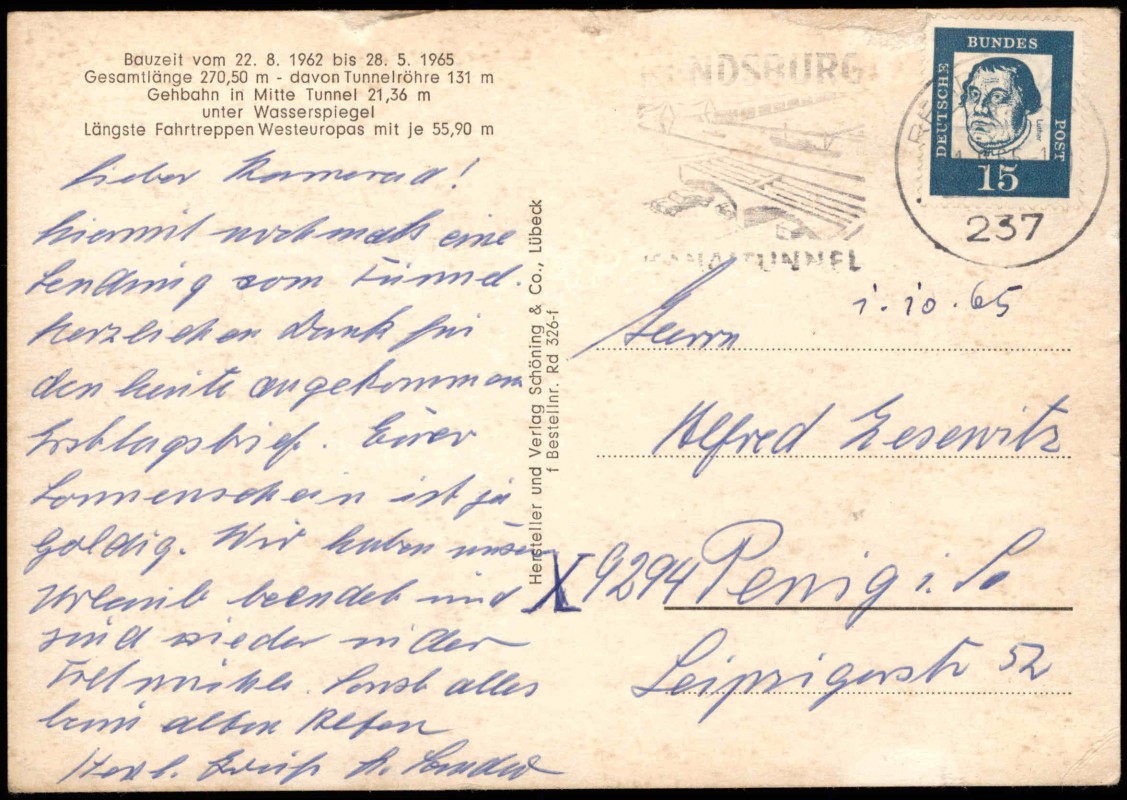 Bauzeit vom 22. 8. 1962 bis 28. 5. 1965
Gesamtlänge 270,50 m - davon Tunnelröhre 131 m
Gehbahn in Mitte Tunnel 21,36 m
unter Wasserspiegel
Längste Fahrtreppen Westeuropas mit je 55,90 m
Lieber Kamerad!
Hiermit nochmals eine
Sendung vom Tunnel.
Herzlichen Dank für
den heute angekommenen
Euer
Sonnenschein ist ja
goldig. Wir haben unseren
Urlaub beendet und
sind wieder in der
Sonst alles
beim alten
Herzl.
Hersteller und Verlag Schöning & Co., Lübeck
f Bestellnr. Rd 326-f
RENDSBURG
KANALTUNNEL
DEUTSCHE
BUNDES
POST
Luther
15
237
1.10.65
Herrn
Alfred Zesewitz
X 9294 Penig i. Sa
Leipzigerstr 52